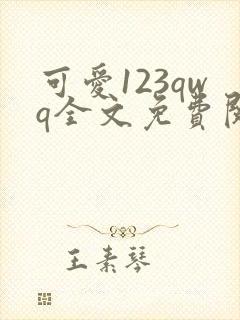 可愛123qw
q全文免費閱
王素琴